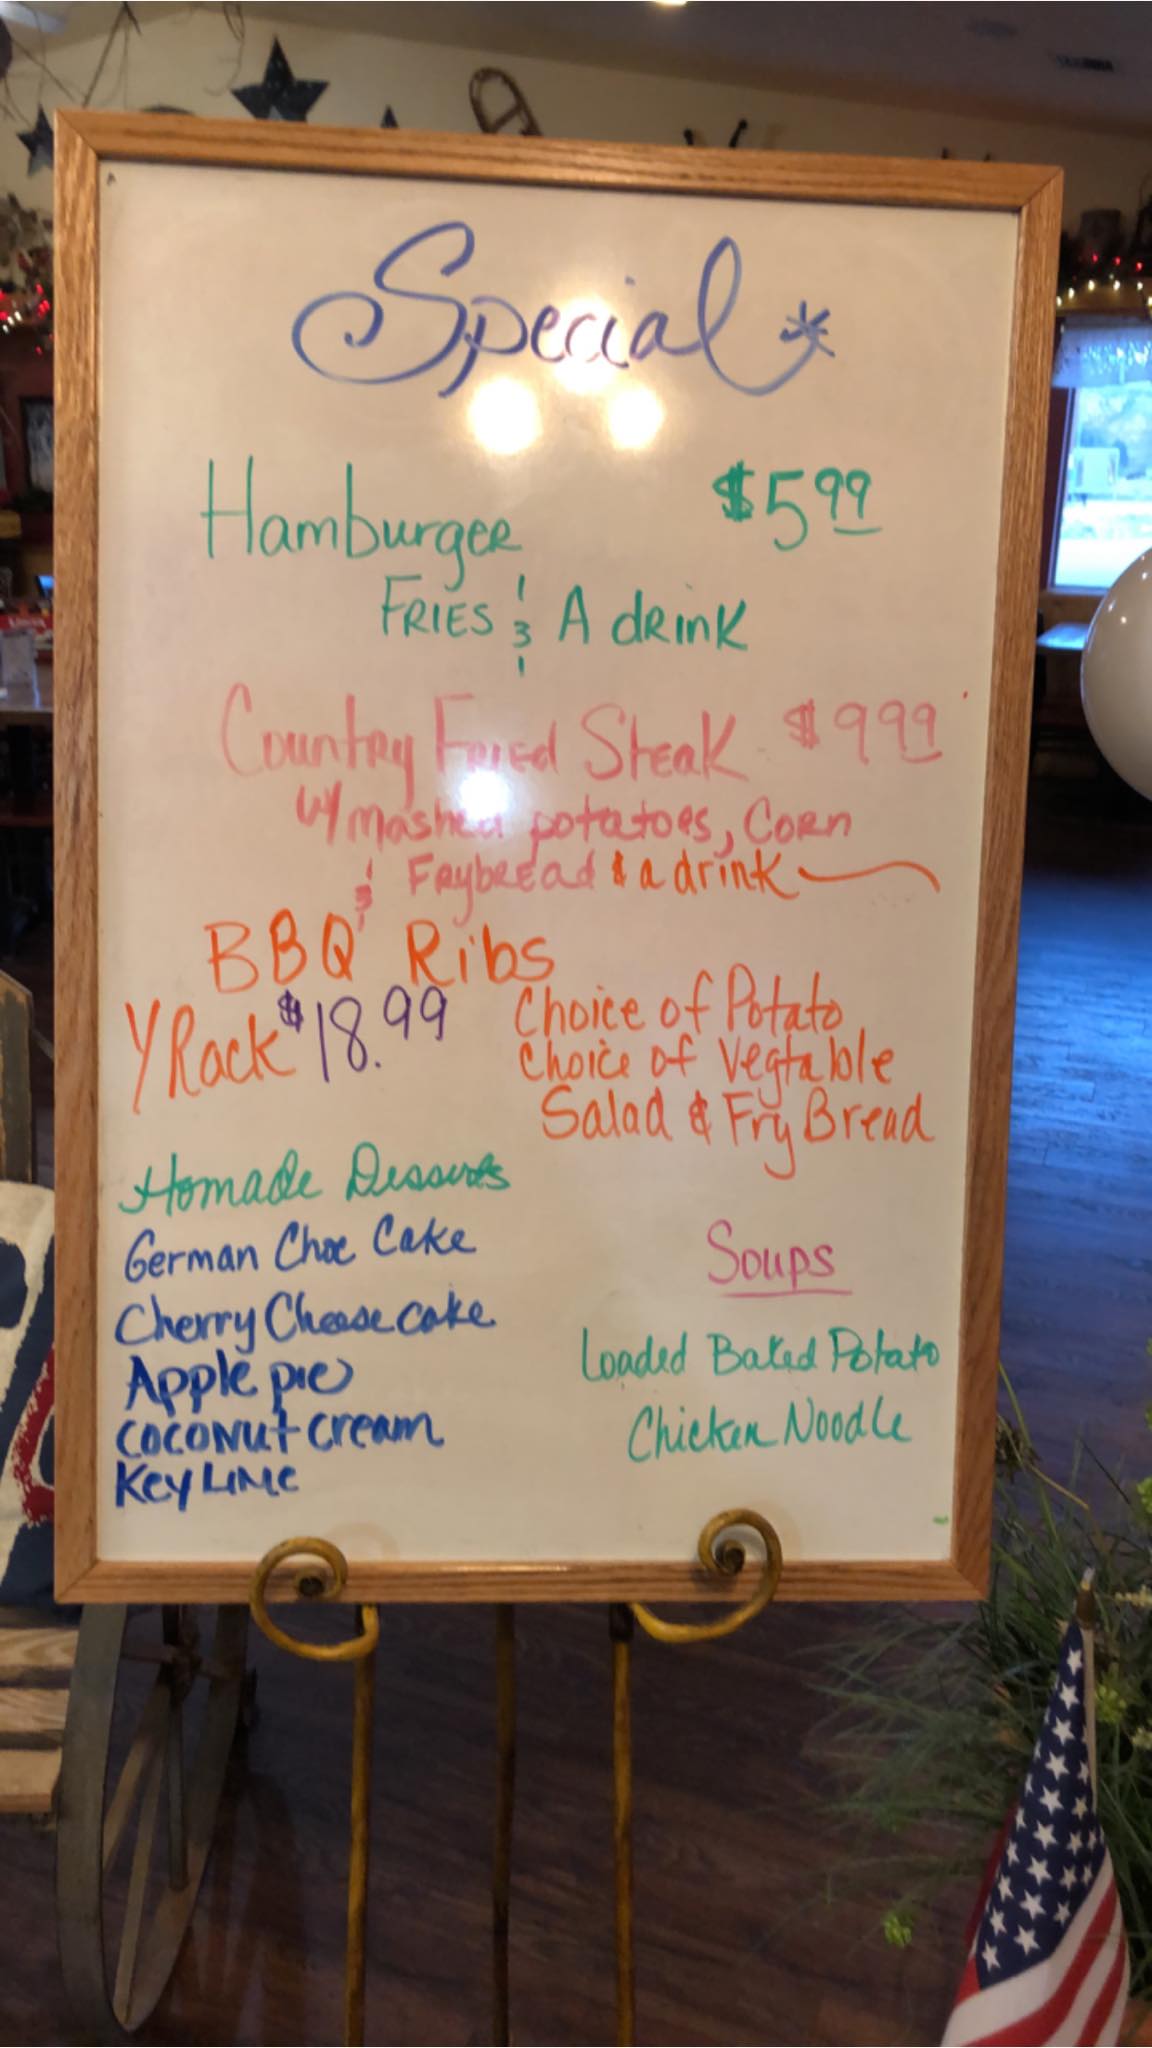 Special *
Hamburger $5.99
FRIES & A drink
Country Fried Steak $9.99
w/ mashed potatoes, Corn
& Frybread & a drink
BBQ Ribs
Rack $18.99
Choice of Potato
Choice of Vegtable
Salad & Fry Bread
Homade Desserts
German Choc Cake
Cherry Cheese cake
Apple pie
COCONUT cream
Key LiMe
Soups
Loaded Baked Potato
Chicken Noodle